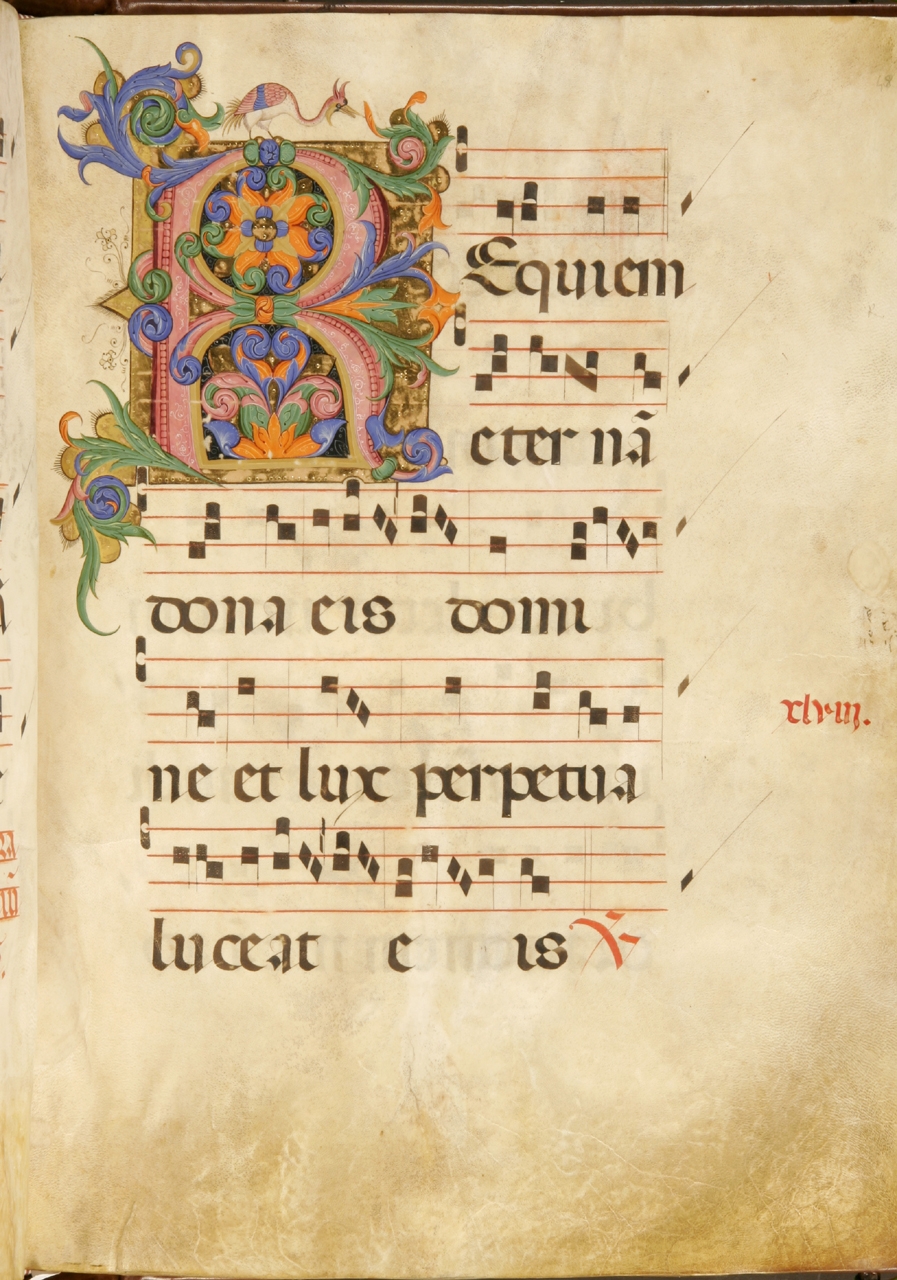 REquiem
eternã
dona eis domi
xlviii.
ne et lux perpetua
luceat e is ℣